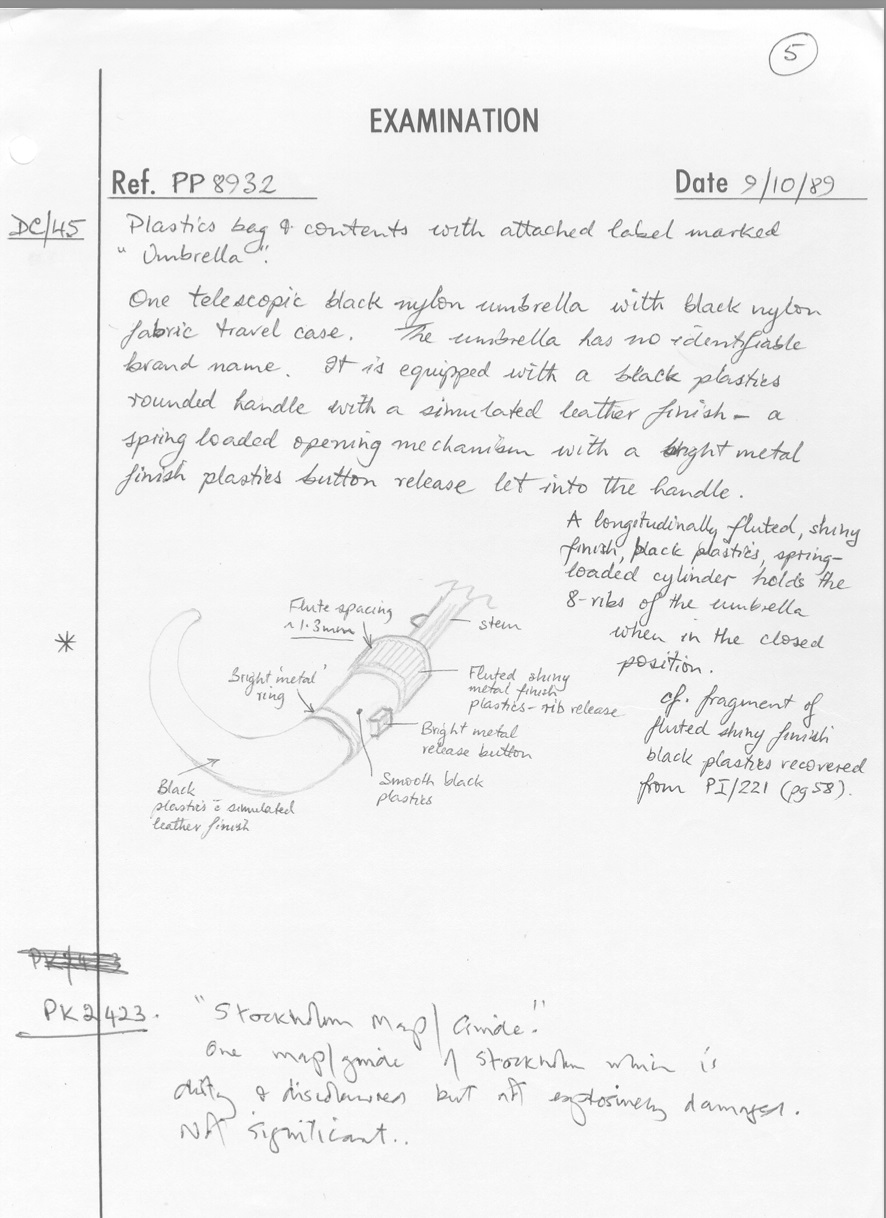 5
EXAMINATION
Ref. PP 8932
Date 9/10/89
DC/45
Plastics bag & contents with attached label marked
"Umbrella".
One telescopic black nylon umbrella with black nylon
fabric travel case. The umbrella has no identifiable
brand name. It is equipped with a black plastics
rounded handle with a simulated leather finish – a
spring loaded opening mechanism with a bright metal
finish plastics button release let into the handle.
A longitudinally fluted, shiny
finish, black plastics, spring-
loaded cylinder holds the
8-ribs of the umbrella
when in the closed
position.
cf. fragment of
fluted shiny finish
black plastics recovered
from PI/221 (pg 58).
*
Flute spacing
~1.3mm
stem
Bright 'metal'
ring
Fluted shiny
metal finish
plastics – rib release
Bright metal
release button
Smooth black
plastics
Black
plastics c̄ simulated
leather finish
PK2423.
"Stockholm Map/Guide".
One map/guide of Stockholm which is
dirty & discoloured but not explosively damaged.
Not significant..